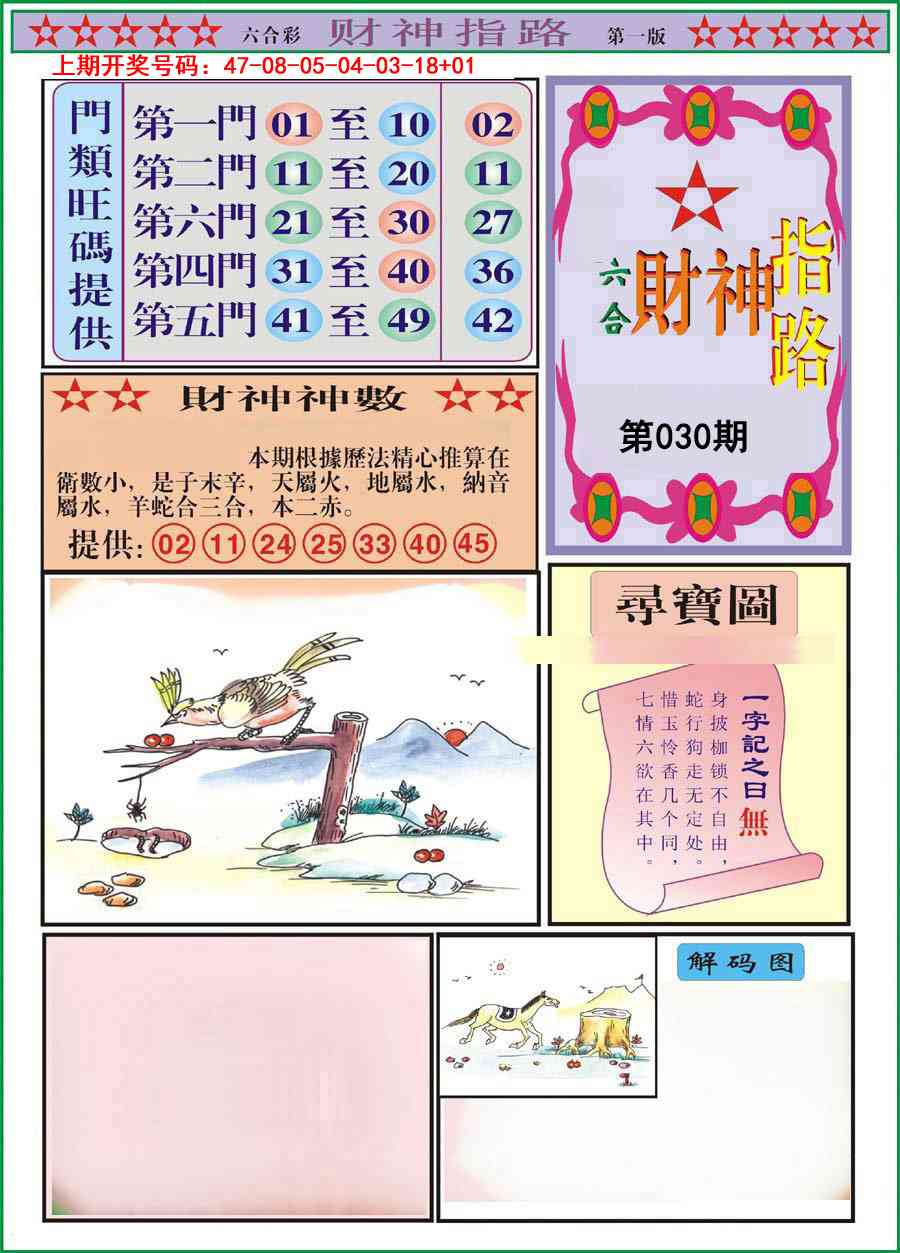 六合彩 财神指路 第一版
上期开奖号码：47-08-05-04-03-18+01
門類旺碼提供
第一門 01 至 10 02
第二門 11 至 20 11
第六門 21 至 30 27
第四門 31 至 40 36
第五門 41 至 49 42
六合
財神
指路
第030期
財神神數
本期根據歷法精心推算在
衛數小，是子末辛，天屬火，地屬水，納音
屬水，羊蛇合三合，本二赤。
提供: 02 11 24 25 33 40 45
尋寶圖
一字記之曰無
身披枷锁不自由，
蛇行狗走无定处。
惜玉怜香几个同，
七情六欲在其中。
解码图